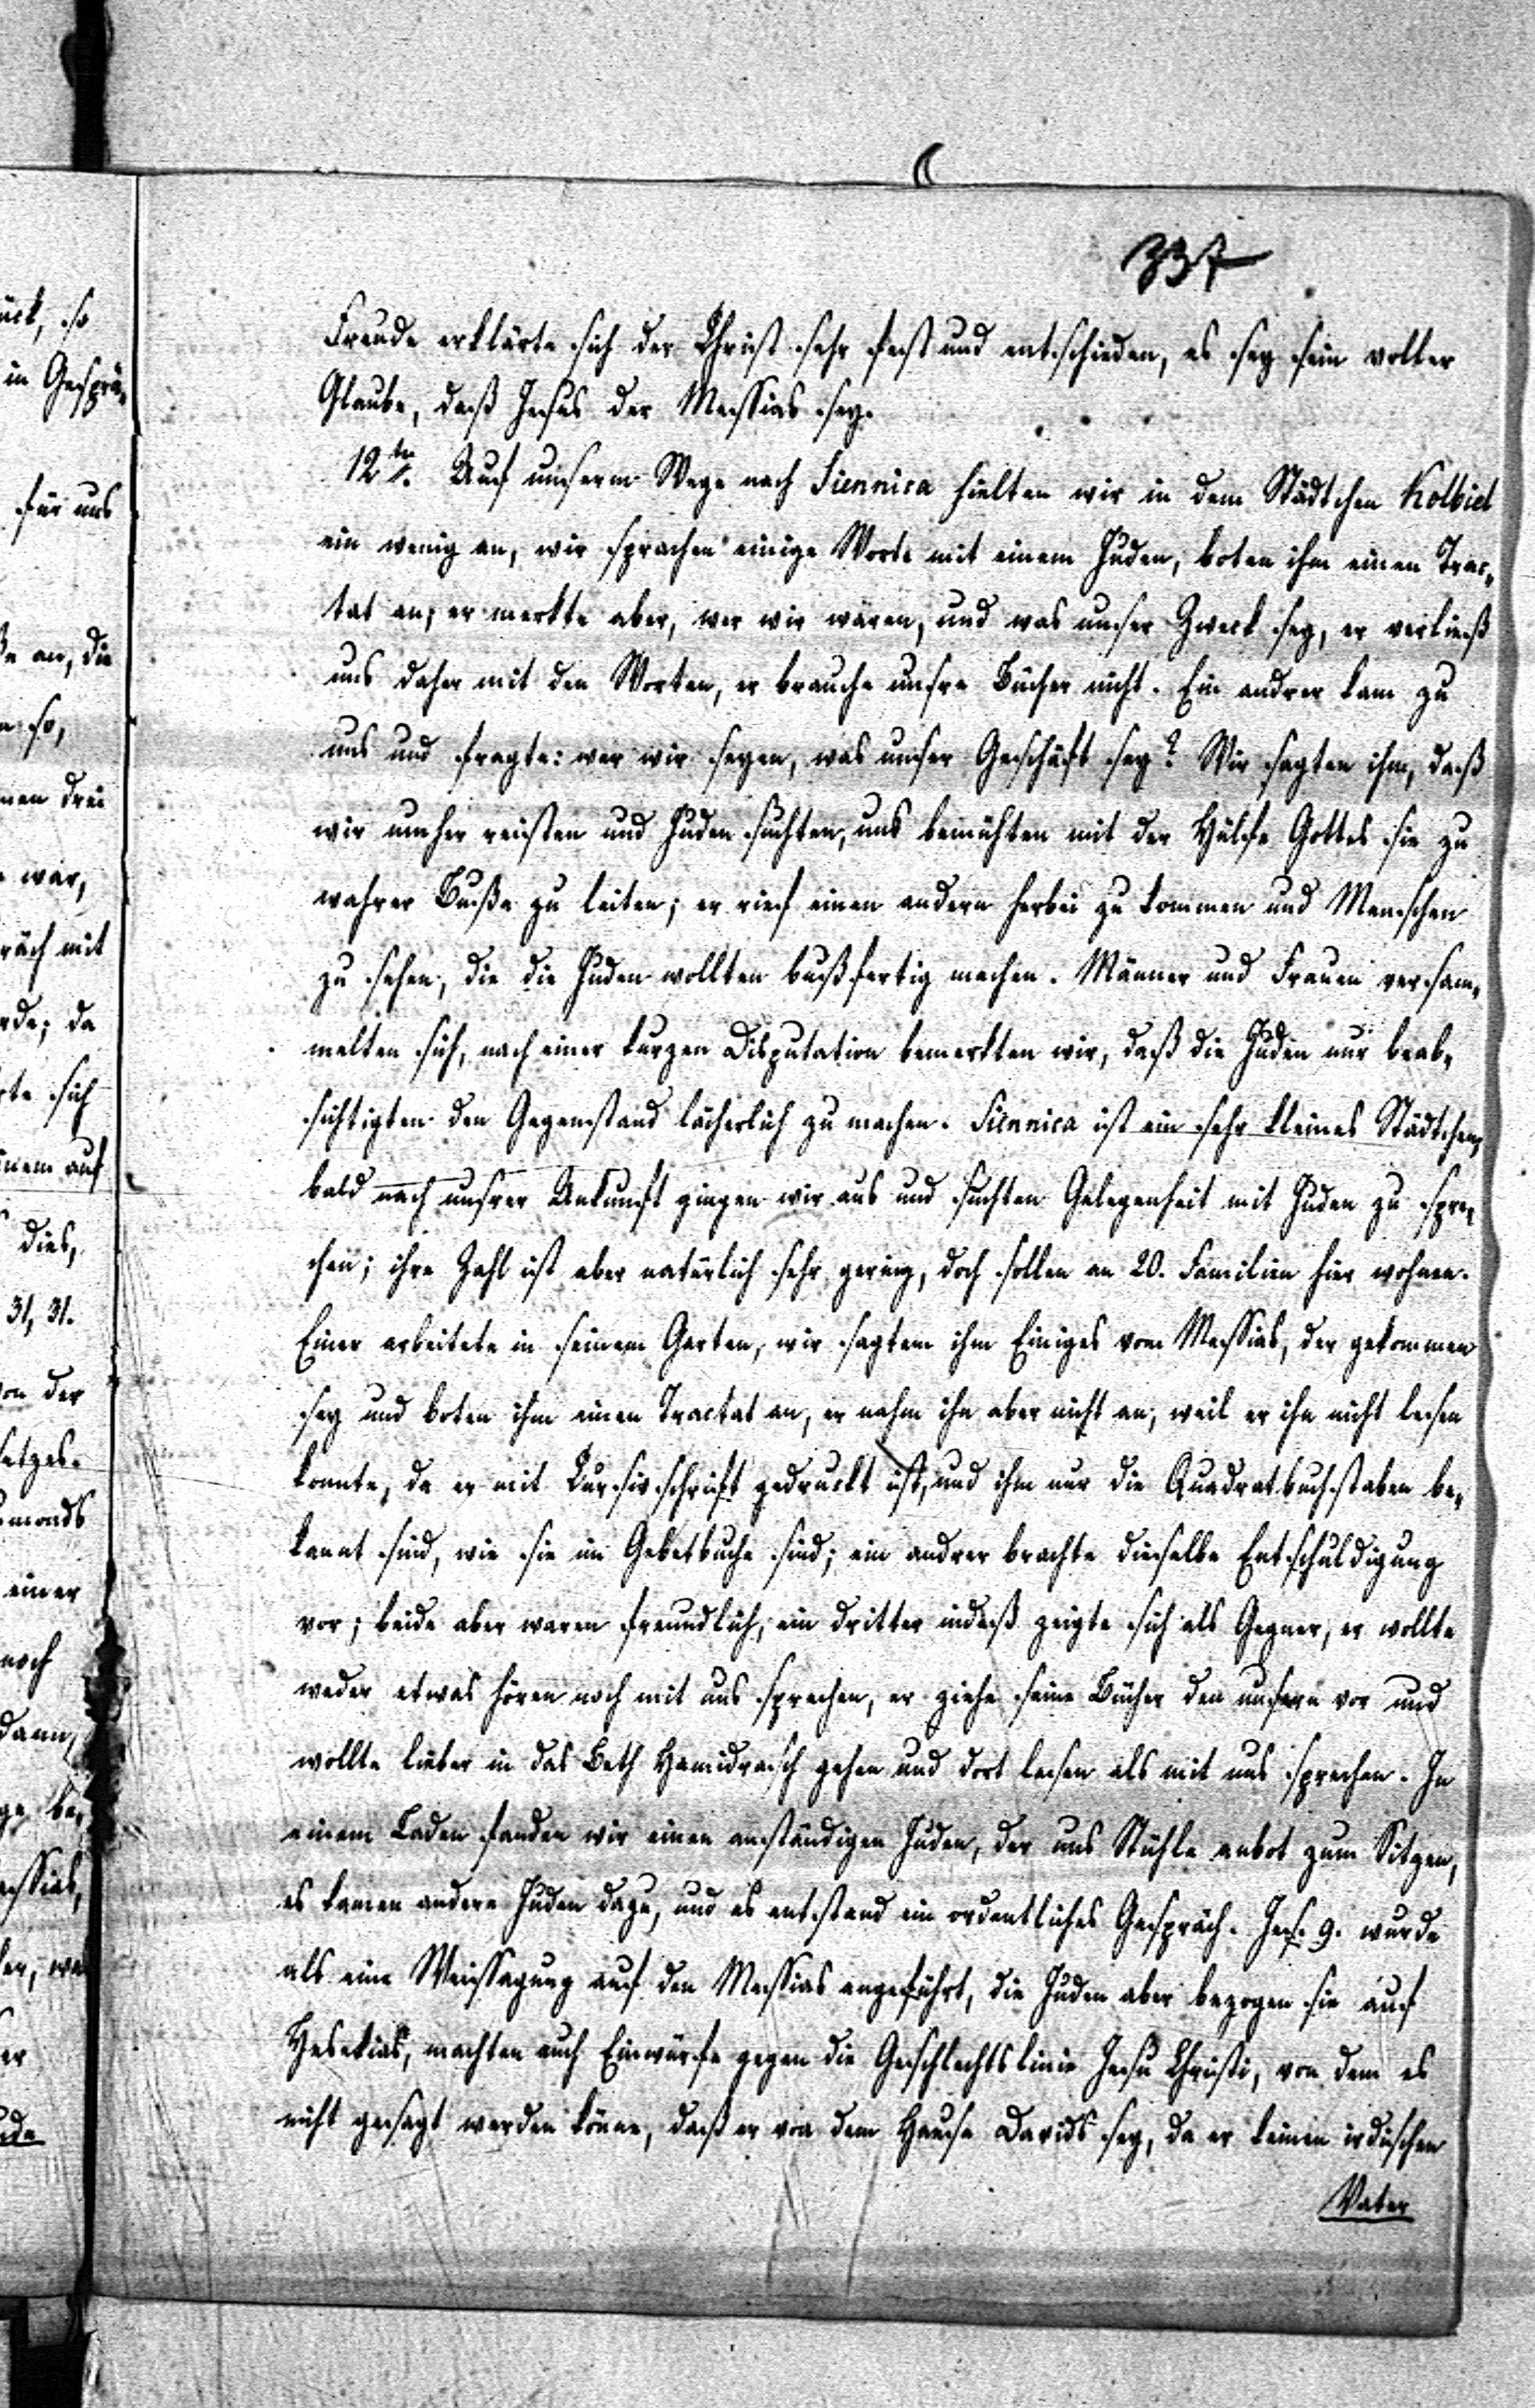 337
Freude erklärte sich der Christ sehr fest und entschieden, es sey sein voller
Glaube, daß Jesus der Messias sey.
12te. Auf unserm Wege nach Siennica hielten wir in dem Städtchen Kolbiel
ein wenig an, wir sprachen einige Worte mit einem Juden, boten ihm einen Trac-
tat an, er merkte aber, wer wir waren, und was unser Zweck sey, er verließ
uns daher mit den Worten, er brauche unsre Bücher nicht. Ein andrer kam zu
uns und fragte: wer wir seyen, was unser Geschäft sey? Wir sagten ihm, daß
wir umher reisten und Juden suchten, uns bemühten mit der Hülfe Gottes sie zu
wahrer Buße zu leiten; er rief einen andern herbei zu kommen und Menschen
zu sehen, die die Juden wollten bußfertig machen. Männer und Frauen versam-
melten sich, nach einer kurzen Disputation bemerkten wir, daß die Juden nur beab-
sichtigten den Gegenstand lächerlich zu machen. Siennica ist ein sehr kleines Städtchen,
bald nach unsrer Ankunft giengen wir aus und suchten Gelegenheit mit Juden zu spre-
chen; ihre Zahl ist aber natürlich sehr gering, doch sollen an 20. Familien hier wohnen.
Einer arbeitete in seinem Garten, wir sagten ihm Einiges vom Messias, der gekommen
sey und boten ihm einen Tractat an, er nahm ihn aber nicht an, weil er ihn nicht lesen
konnte, da er mit Cursivschrift gedruckt ist, und ihm nur die Quadratbuchstaben be-
kannt sind, wie sie im Gebetbuche sind; ein andrer brachte dieselbe Entschuldigung
vor; beide aber waren freundlich, ein dritter indeß zeigte sich als Gegner, er wollte
weder etwas hören noch mit uns sprechen, er ziehe seine Bücher den unsern vor und
wollte lieber in das Beth Hamidrasch gehen und dort lesen als mit uns sprechen. In
einem Laden fanden wir einen anständigen Juden, der uns Stühle anbot zum Sitzen,
es kamen andere Juden dazu, und es entstand ein ordentliches Gespräch. Jes. 9. wurde
als eine Weissagung auf den Messias angeführt, die Juden aber bezogen sie auf
Hesekias, machten auch Einwürfe gegen die Geschlechtslinie Jesu Christi, von dem es
nicht gesagt werden könne, daß er von dem Hause Davids sey, da er keinen irdischen
Vater